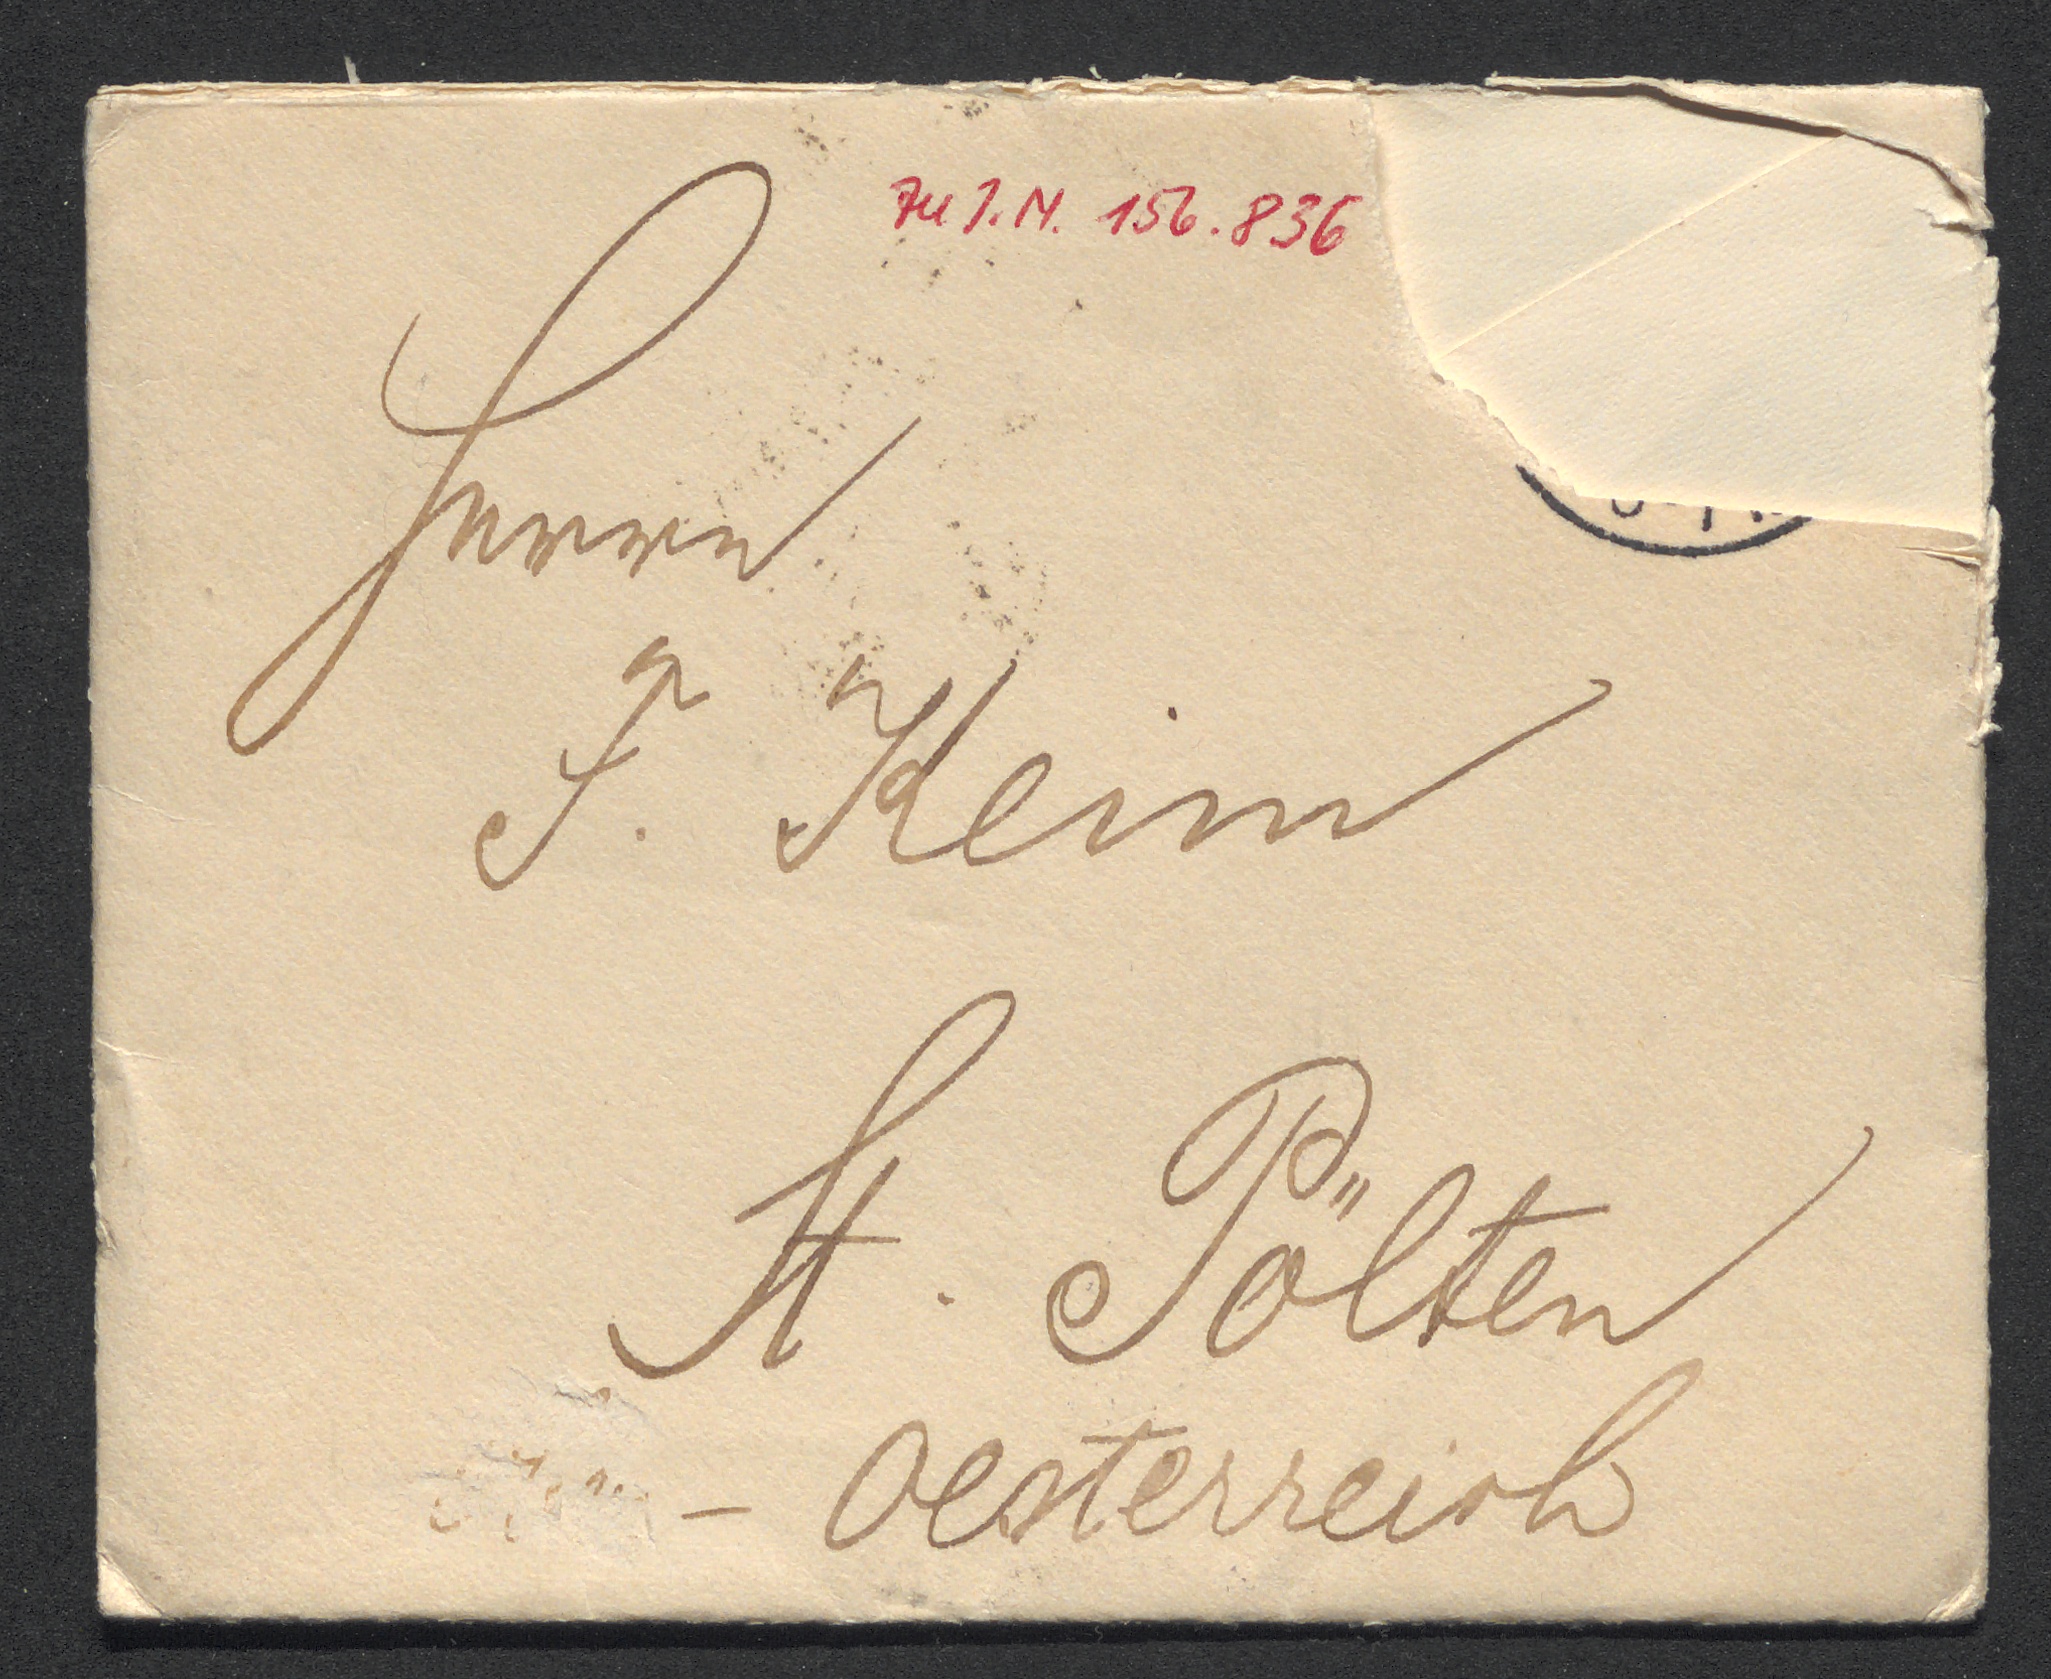 zu I.N. 156.836
Herrn
F. Keim
St. Pölten
– Oesterreich